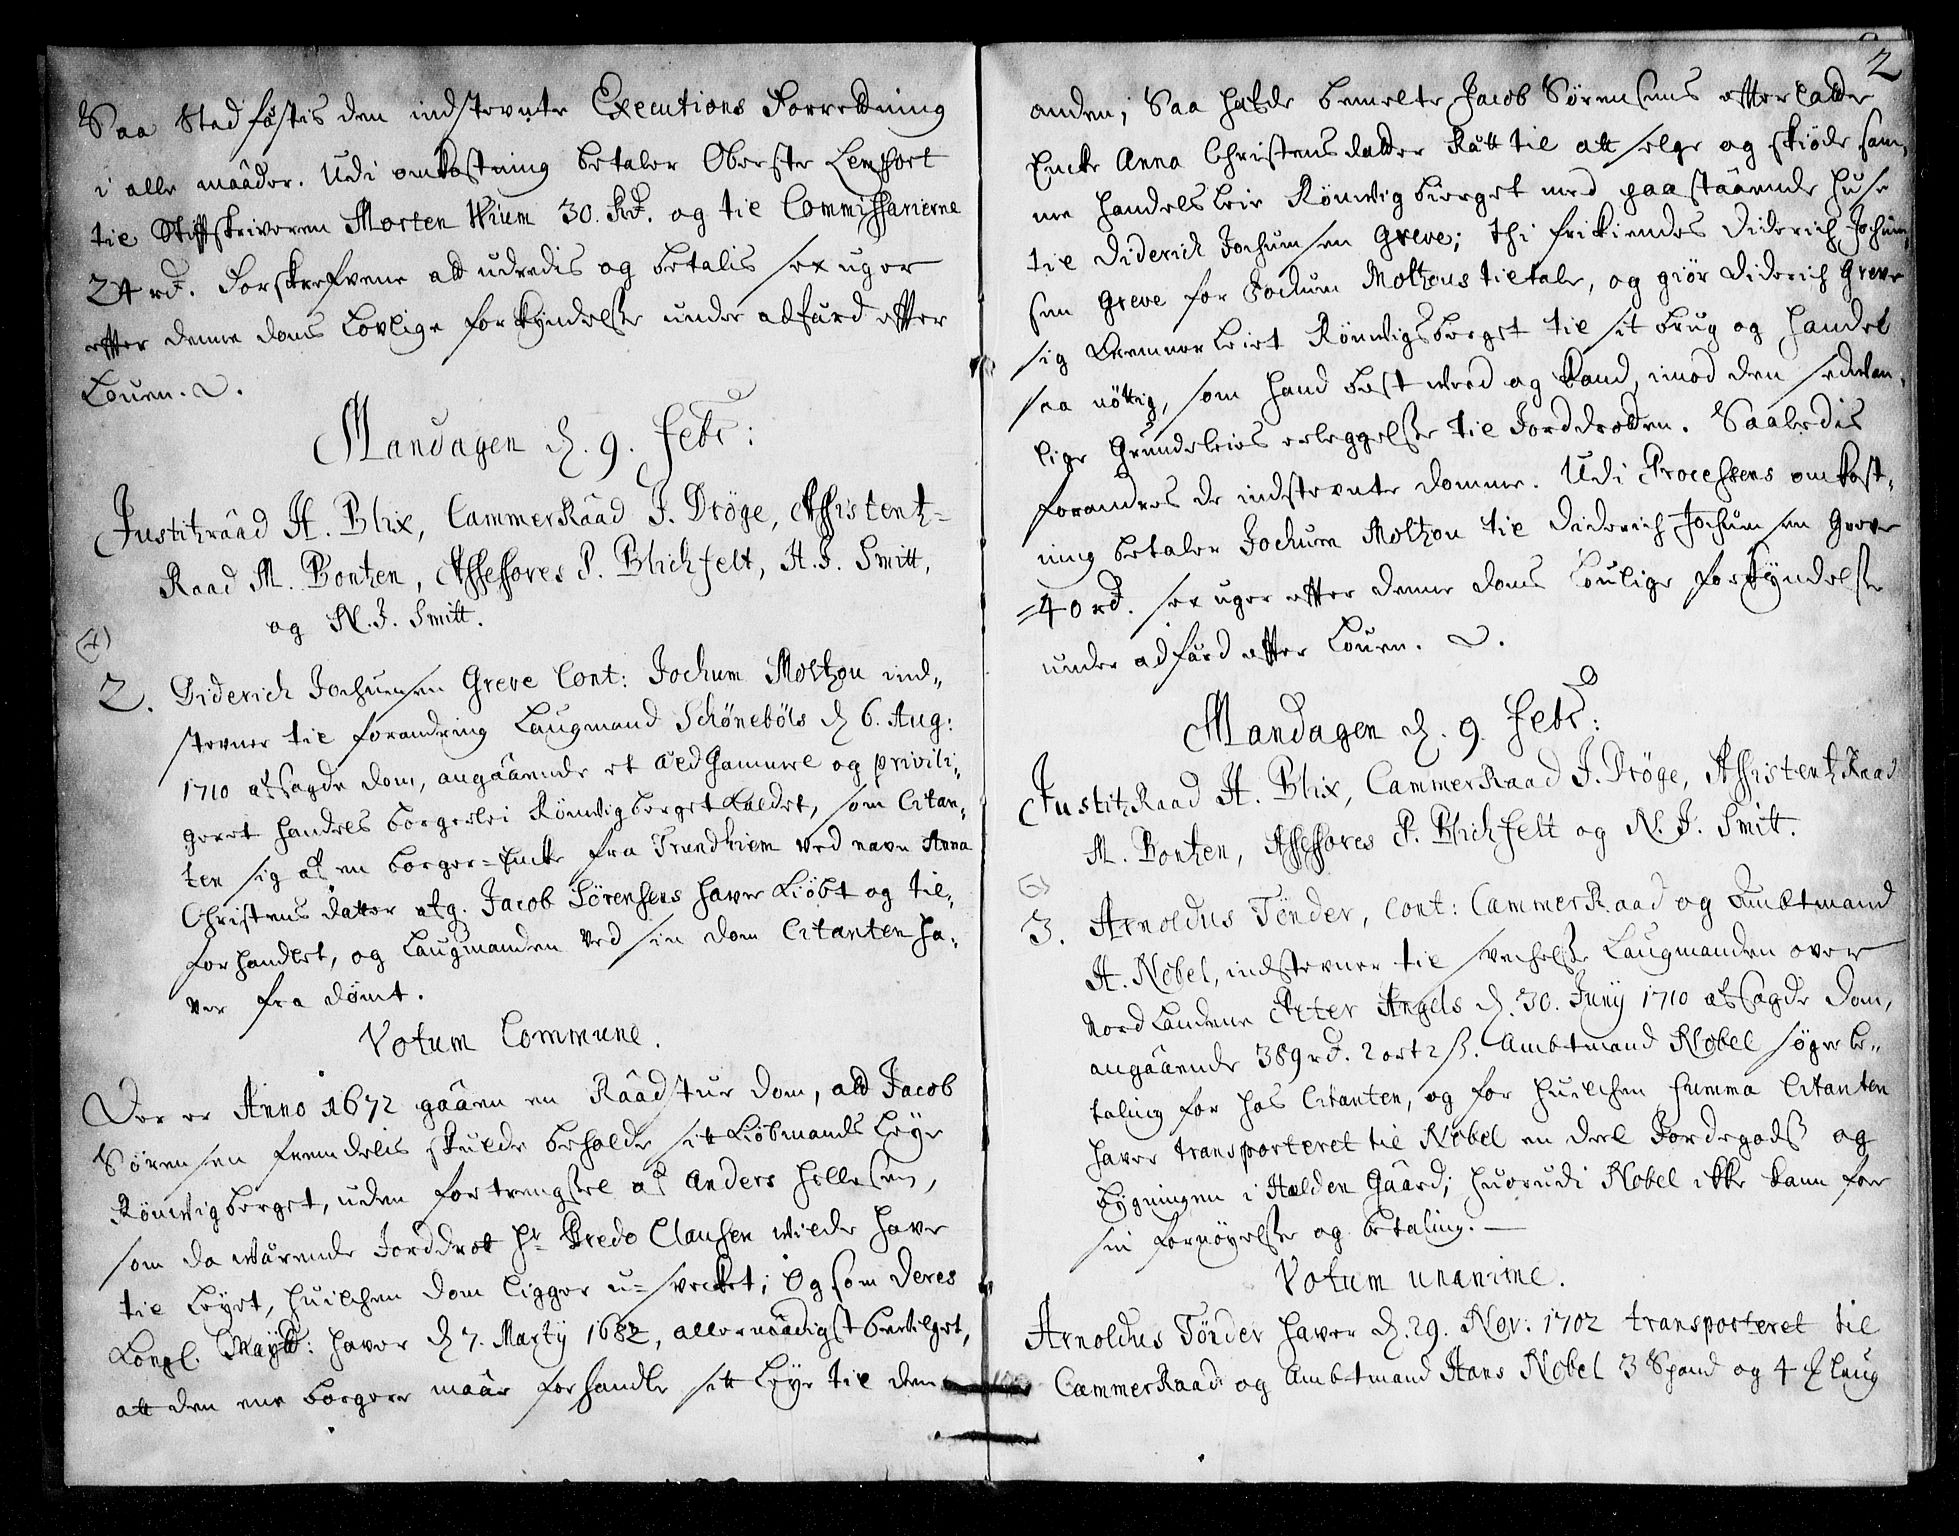 Saa Stadfæstis den indstevnte Executions Forretning
i alle maader. Udi omkostning betaler Oberste Lenfort
til Stiftskriveren Morten Wium 30. Rd. og til Commissarierne
24 rd. Forskrefvene alt udredis og betalis sex uger
efter denne doms lovlige forkyndelse under adfærd efter
Louen.
Mandagen d. 9. Febr:
Justitzraad H. Blix, CammerRaad J. Dröge, Assistentz-
Raad M. Bontzen, Assessores P. Blichfelt, H. J. Smitt,
og N. J. Smitt.
2. Diderich Jochumsen Greve Cont: Jochum Moltzou ind-
stevner til forandring Laugmand Schönebøls d. 6. Aug:
1710 afsagde dom, angaaende et ældgammel og privili-
geret handels borgerlei Rönvigberget kaldet, som Citan-
ten sig af en borger-Encke fra Trundhiem ved navn Anna
Christens datter afg. Jacob Sörensens haver kiøbt og til-
forhandlet, og Laugmanden ved sin dom Citanten ha-
ver fra dømt.
Votum Commune.
Der er Anno 1672 gaaen en Raadstue dom, at Jacob
Sörensen fremdelis skulde beholde sit kiøbmands leye
Rönvigberget, uden fortrengsel af Anders Hellesen,
som da værende Jorddrot Hr. Predo Clausen vilde have
til leyet, huilchen dom ligger u-svecket; Og som Deres
Kongl. Mayst: haver d. 7. Martij 1682, allernaadigst bevilget,
att den ene borgere maae forhandle sitt leye til den
2
anden; Saa hafde bemelte Jacob Sörensens efterladte
Encke Anna Christensdatter Rætt til att selge og skiøde sam-
me handelsleie Rönvigberget med paastaaende huse
til Diderich Jochumsen Greve; thi frikiendes Diderich Jochum-
sen Greve for Jochum Moltzous tiltale, og giör Diderich Greve
sig bemelte leiet Rönvigsberget til sit brug og handel
saa nøttig, som hand best veed og kand, imod den sedvan-
lige Grundeleies erleggelse til Jorddrotten. Saaledis
forandres de indstevnte domme. Udi Processens omkost-
ning betaler Jochum Moltzou til Diderich Jochumsen Greve
40 rd. sex uger efter denne doms Loulige forkyndelse
under adfærd efter Louen.
Mandagen d. 9. Febr:
JustitzRaad H. Blix, CammerRaad J. Dröge, AssistentzRaad
M. Bontzen, Assessores P. Blichfelt og N. J. Smitt.
3. Arnoldus Tönder, Cont: CammerRaad og Ambtmand
H. Nobel, indstevner til svechelse Laugmanden over
Nordlandene Peter Angels d. 30. Junij 1710 afsagde Dom,
angaaende 389 rd. 2 ort 2 ß. Ambtmand Nobel søger be-
taling for hos Citanten, og for huilchen summa Citanten
haver transporteret til Nobel en deel Jordegods og
bygningen i Halden Gaard; huorudi Nobel ikke kann faae
sin fornøyelse og betaling.
Votum unanime.
Arnoldus Tönder haver d. 29. Nov: 1702 transporteret til
CammerRaad og Ambtmand Hans Nobel 3 Spand og 4